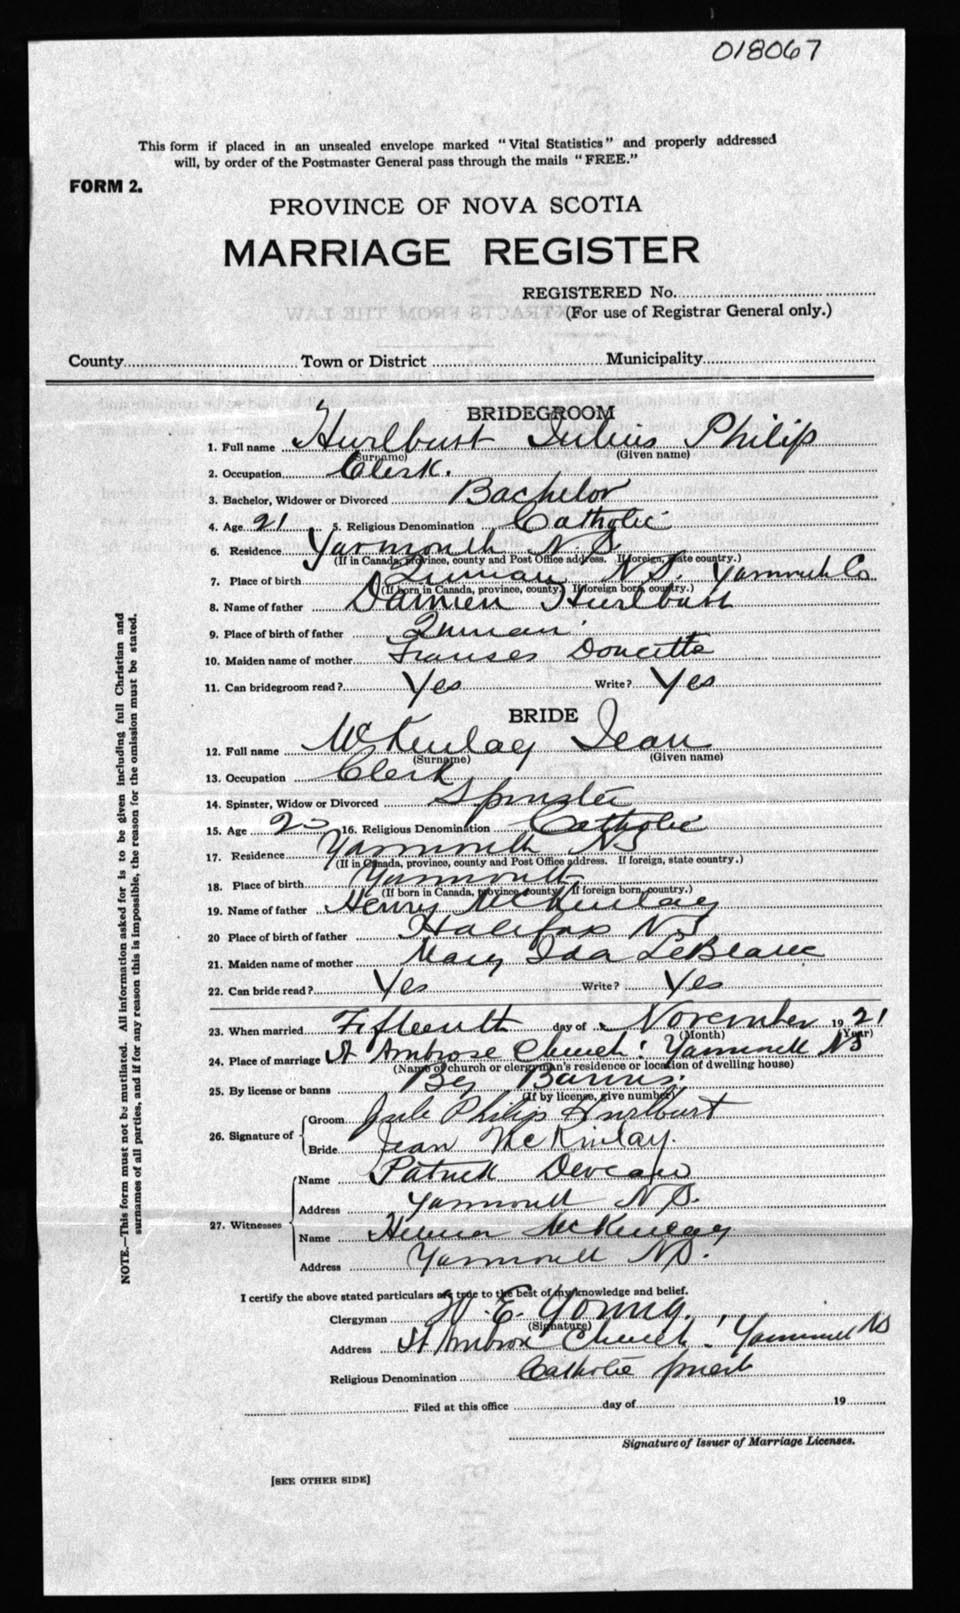 018067
This form if placed in an unsealed envelope marked "Vital Statistics" and properly addressed
will, by order of the Postmaster General pass through the mails "FREE."
FORM 2.
PROVINCE OF NOVA SCOTIA
MARRIAGE REGISTER
REGISTERED No.
(For use of Registrar General only.)
County Town or District Municipality
BRIDEGROOM
1. Full name Hurlburt Julius Philip
(Surname) (Given name)
2. Occupation Clerk.
3. Bachelor, Widower or Divorced Bachelor
4. Age 21 5. Religious Denomination Catholic
6. Residence Yarmouth N S
(If in Canada, province, county and Post Office address. If foreign, state country.)
7. Place of birth Quinan N S. Yarmouth Co
(If born in Canada, province, county. If foreign born, country.)
8. Name of father Damien Hurlburt
9. Place of birth of father Quinan
10. Maiden name of mother Franses Doucette
11. Can bridegroom read? Yes Write? Yes
BRIDE
12. Full name McKinlay Jean
(Surname) (Given name)
13. Occupation Clerk
14. Spinster, Widow or Divorced Spinster
15. Age 20 16. Religious Denomination Catholic
17. Residence Yarmouth N S
(If in Canada, province, county and Post Office address. If foreign, state country.)
18. Place of birth Yarmouth
(If born in Canada, province, county. If foreign born, country.)
19. Name of father Henry McKinlay
20 Place of birth of father Halifax N S
21. Maiden name of mother Mary Ida LeBlanc
22. Can bride read? Yes Write? Yes
23. When married Fifteenth day of November 1921
(Month) (Year)
24. Place of marriage St Ambrose Church: Yarmouth NS
(Name of church or clergyman's residence or location of dwelling house)
25. By license or banns By Banns.
(If by license, give number)
26. Signature of
Groom Jule Philip Hurlburt
Bride Jean McKinlay.
27. Witnesses
Name Patrick Deveau
Address Yarmouth N S.
Name McKinlay
Address Yarmouth N S.
I certify the above stated particulars are true to the best of my knowledge and belief.
Clergyman W. E. Young.
(Signature)
Address St Ambrose Church! Yarmouth NS
Religious Denomination Catholic priest
Filed at this office day of 19
Signature of Issuer of Marriage Licenses.
[SEE OTHER SIDE]
NOTE.—This form must not be mutilated. All information asked for is to be given including full Christian and
surnames of all parties, and if for any reason this is impossible, the reason for the omission must be stated.